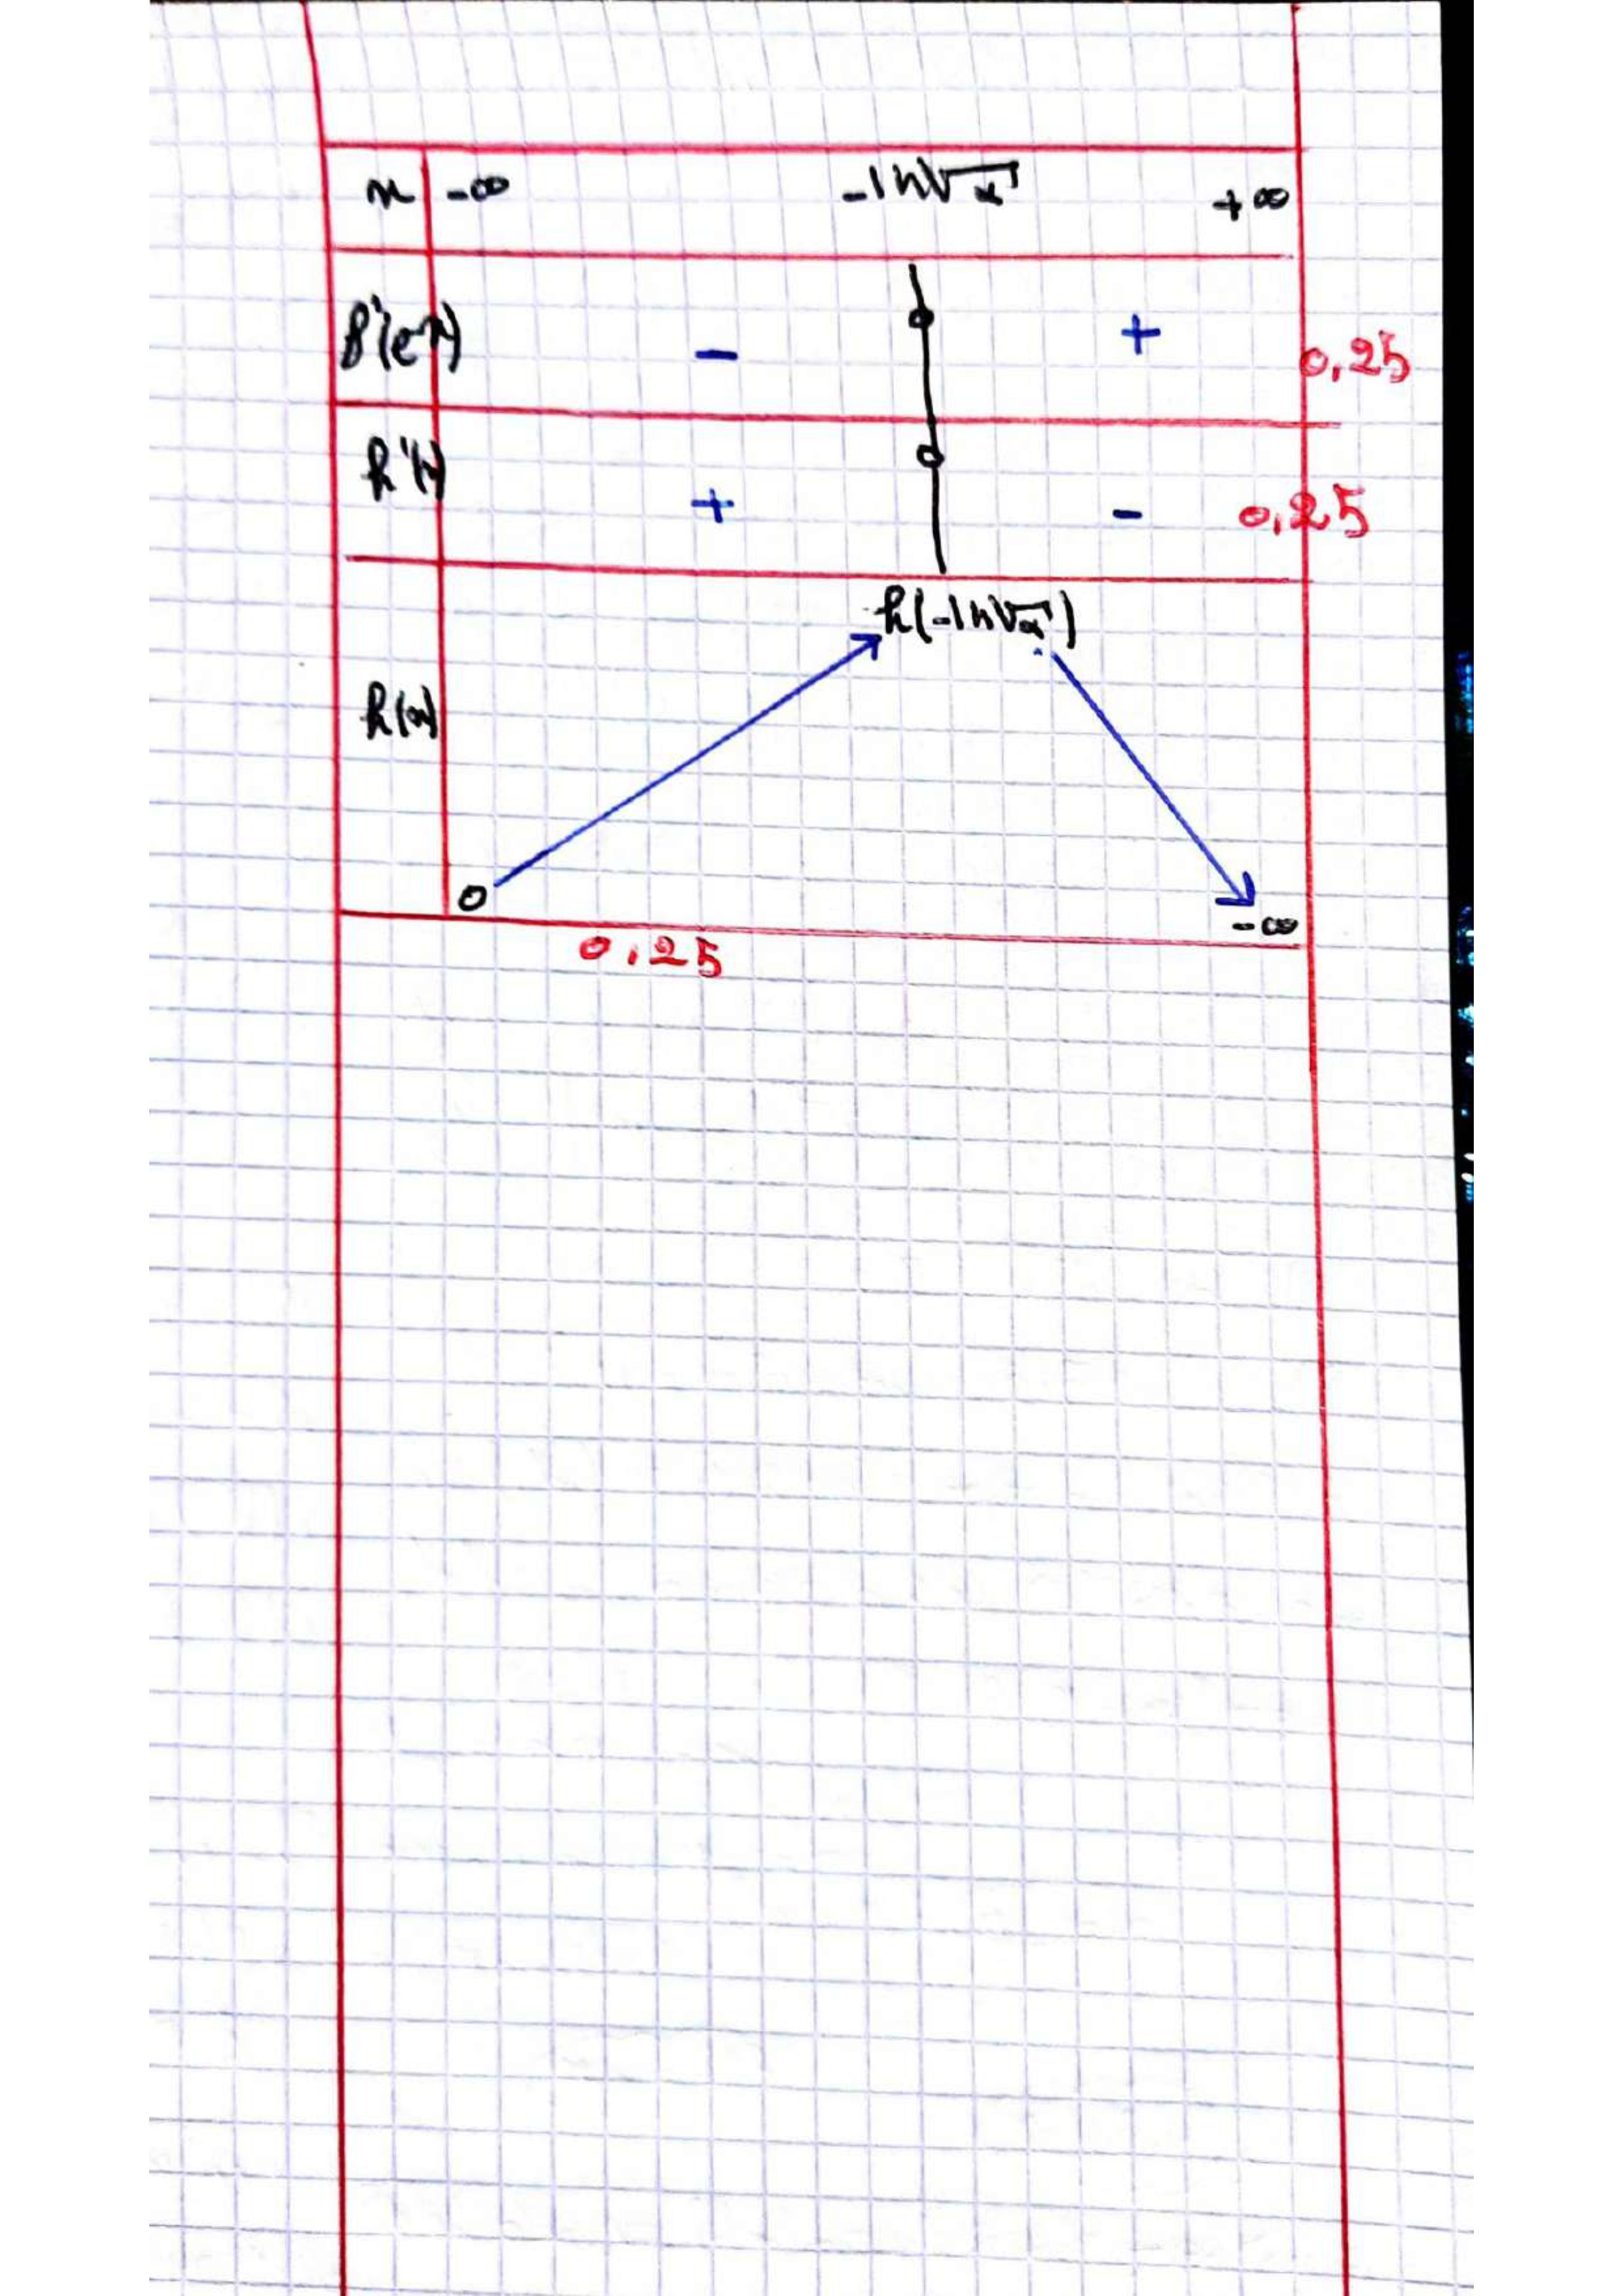 x -∞ -ln√α +∞
f'(e^-x) - + 0,25
h'(x) + - 0,25
h(-ln√α)
h(x)
0 -∞
0,25